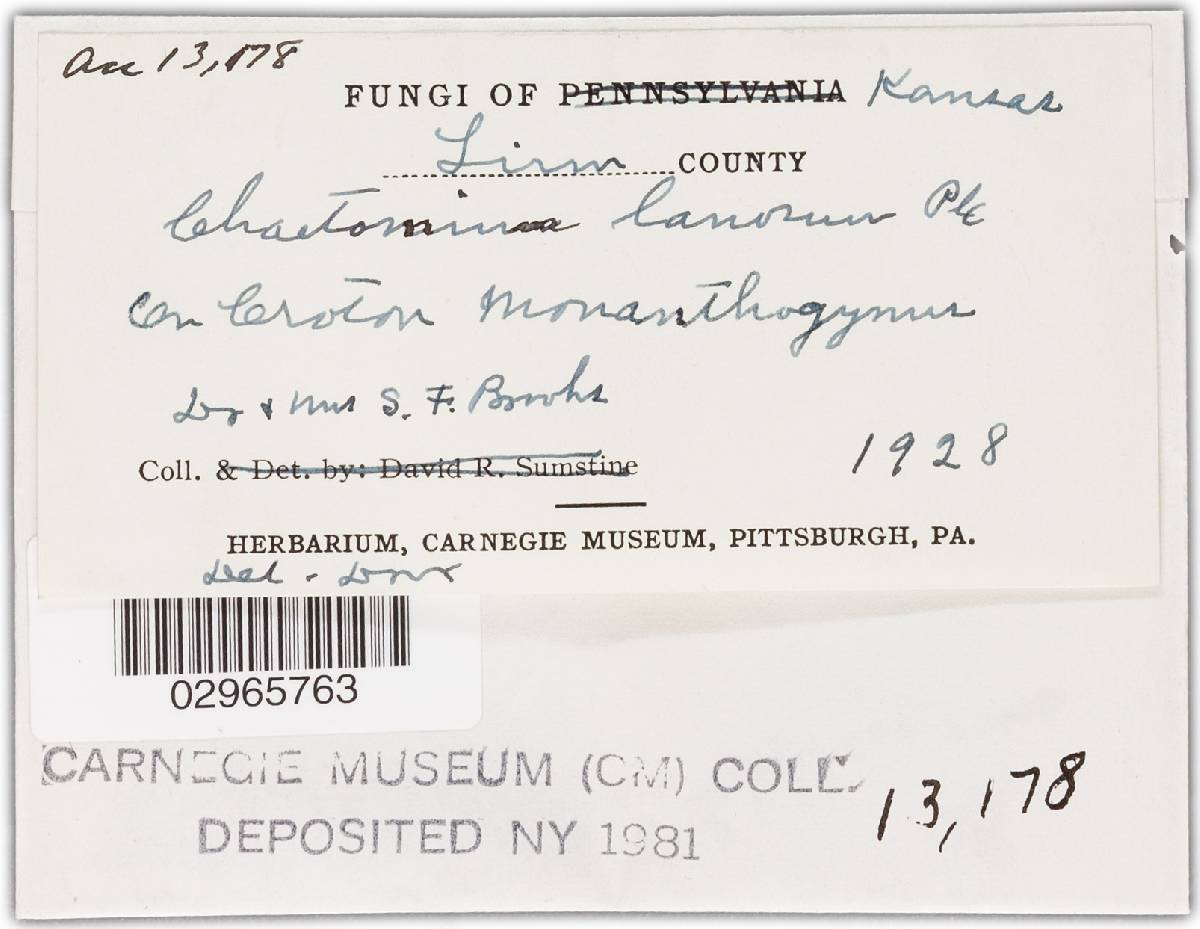 Acc 13,178
FUNGI OF PENNSYLVANIA Kansas
Linn COUNTY
Chaetomium lanosum Pk
On Croton Monanthogynus
Dr & Mrs S. F. Brooks
Coll. & Det. by: David R. Sumstine
1928
HERBARIUM, CARNEGIE MUSEUM, PITTSBURGH, PA.
Det.
02965763
CARNEGIE MUSEUM (CM) COLL.
DEPOSITED NY 1981
13,178